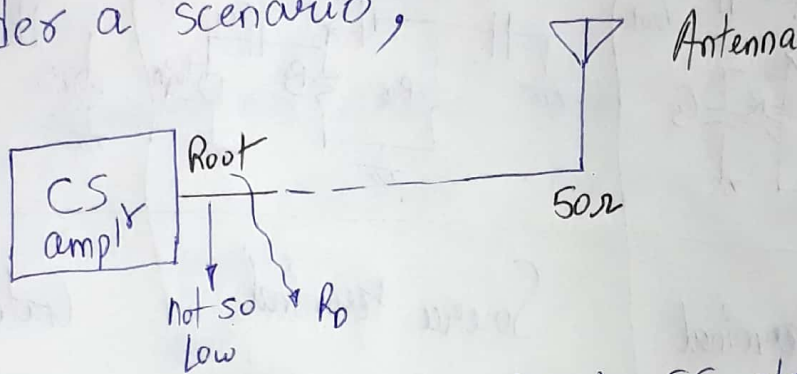 der a scenario,
Antenna
CS
ampl^r
Rout
50Ω
not so
Low
R_D